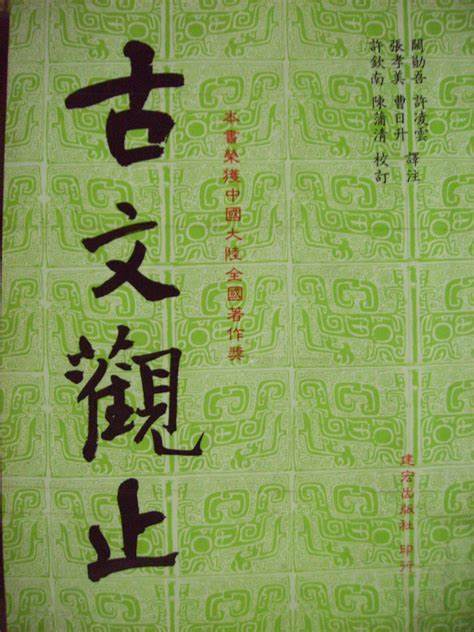 闕勛吾 許凌雲 譯注
張孝美 曹日升
許欽南 陳蒲清 校訂
建宏出版社 印行
本書榮獲中國大陸全國著作獎
古文觀止